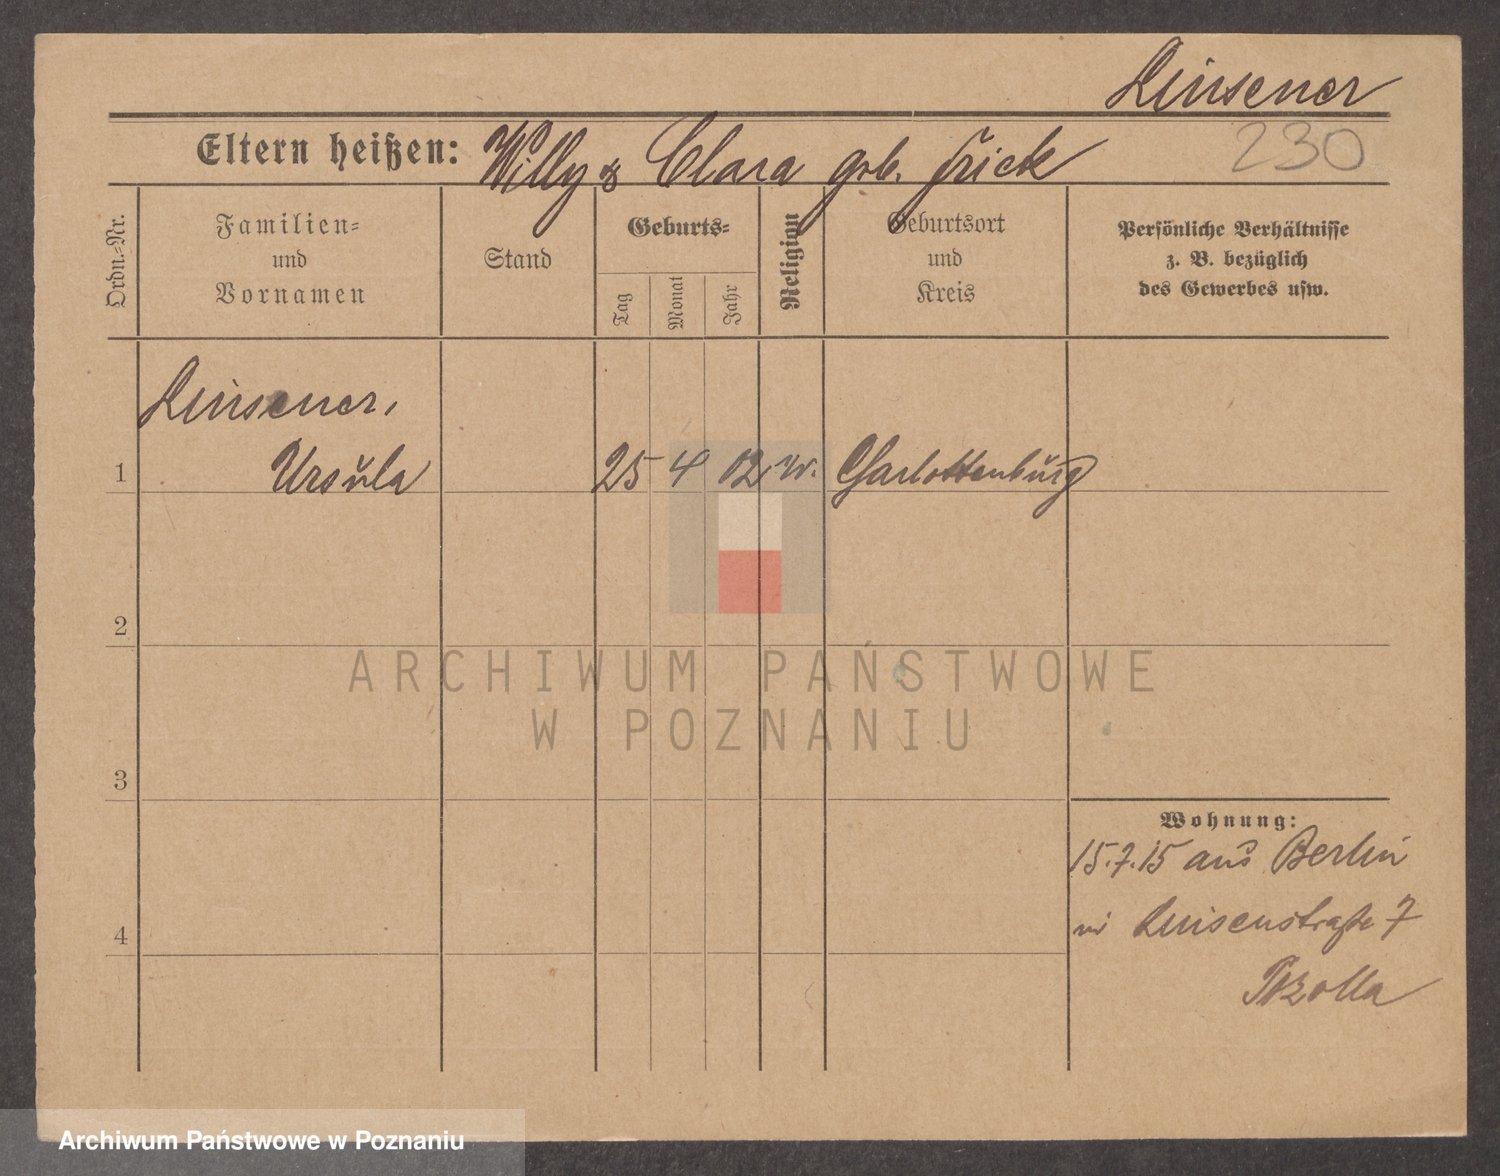 Linsener
230
Eltern heißen: Willy & Clara geb. Frick
Ordn.-Nr.
Familien-
und
Vornamen
Stand
Geburts-
Tag
Monat
Jahr
Religion
Geburtsort
und
Kreis
Persönliche Verhältnisse
z. B. bezüglich
des Gewerbes usw.
Linsener,
1 Ursula 25 4 02 Charlottenburg
2
ARCHIWUM PAŃSTWOWE
W POZNANIU
3
Wohnung:
15.7.15 aus Berlin
4
Luisenstraße 7
Archiwum Państwowe w Poznaniu